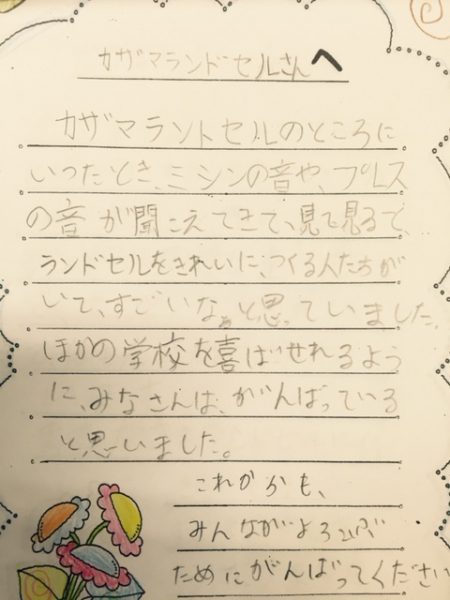 カザマランドセルさんへ
カザマラントセルのところに
いったとき、ミシンの音や、プレス
の音が聞こえてきて、見て見るで、
ランドセルをきれいに、つくる人たちが
いて、すごいなぁと思っていました。
ほかの学校を喜ばせれるよう
に、みなさんは、がんばっている
と思いました。
これからも、
みんながよろこぶ
ためにがんばってください